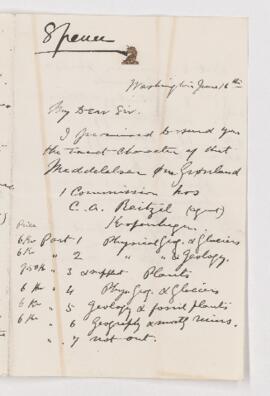 Spencer
Washington June 16th
My Dear Sir.
I promised to send you
the exact character of that
Meddelelser Om Grønland
1 Commission hos
C. A. Reitzel (agent)
Kopenhagen.
Price
6 Kr Part 1 Physical Geog. & Glaciers
6 Kr " 2 " " & Geology.
3 & suppt Plants
6 Kr " 4 Phys Geog. & Glaciers
6 Kr " 5 Geology & fossil plants
6 Kr " 6 Geography & ruins.
" 7 not out.